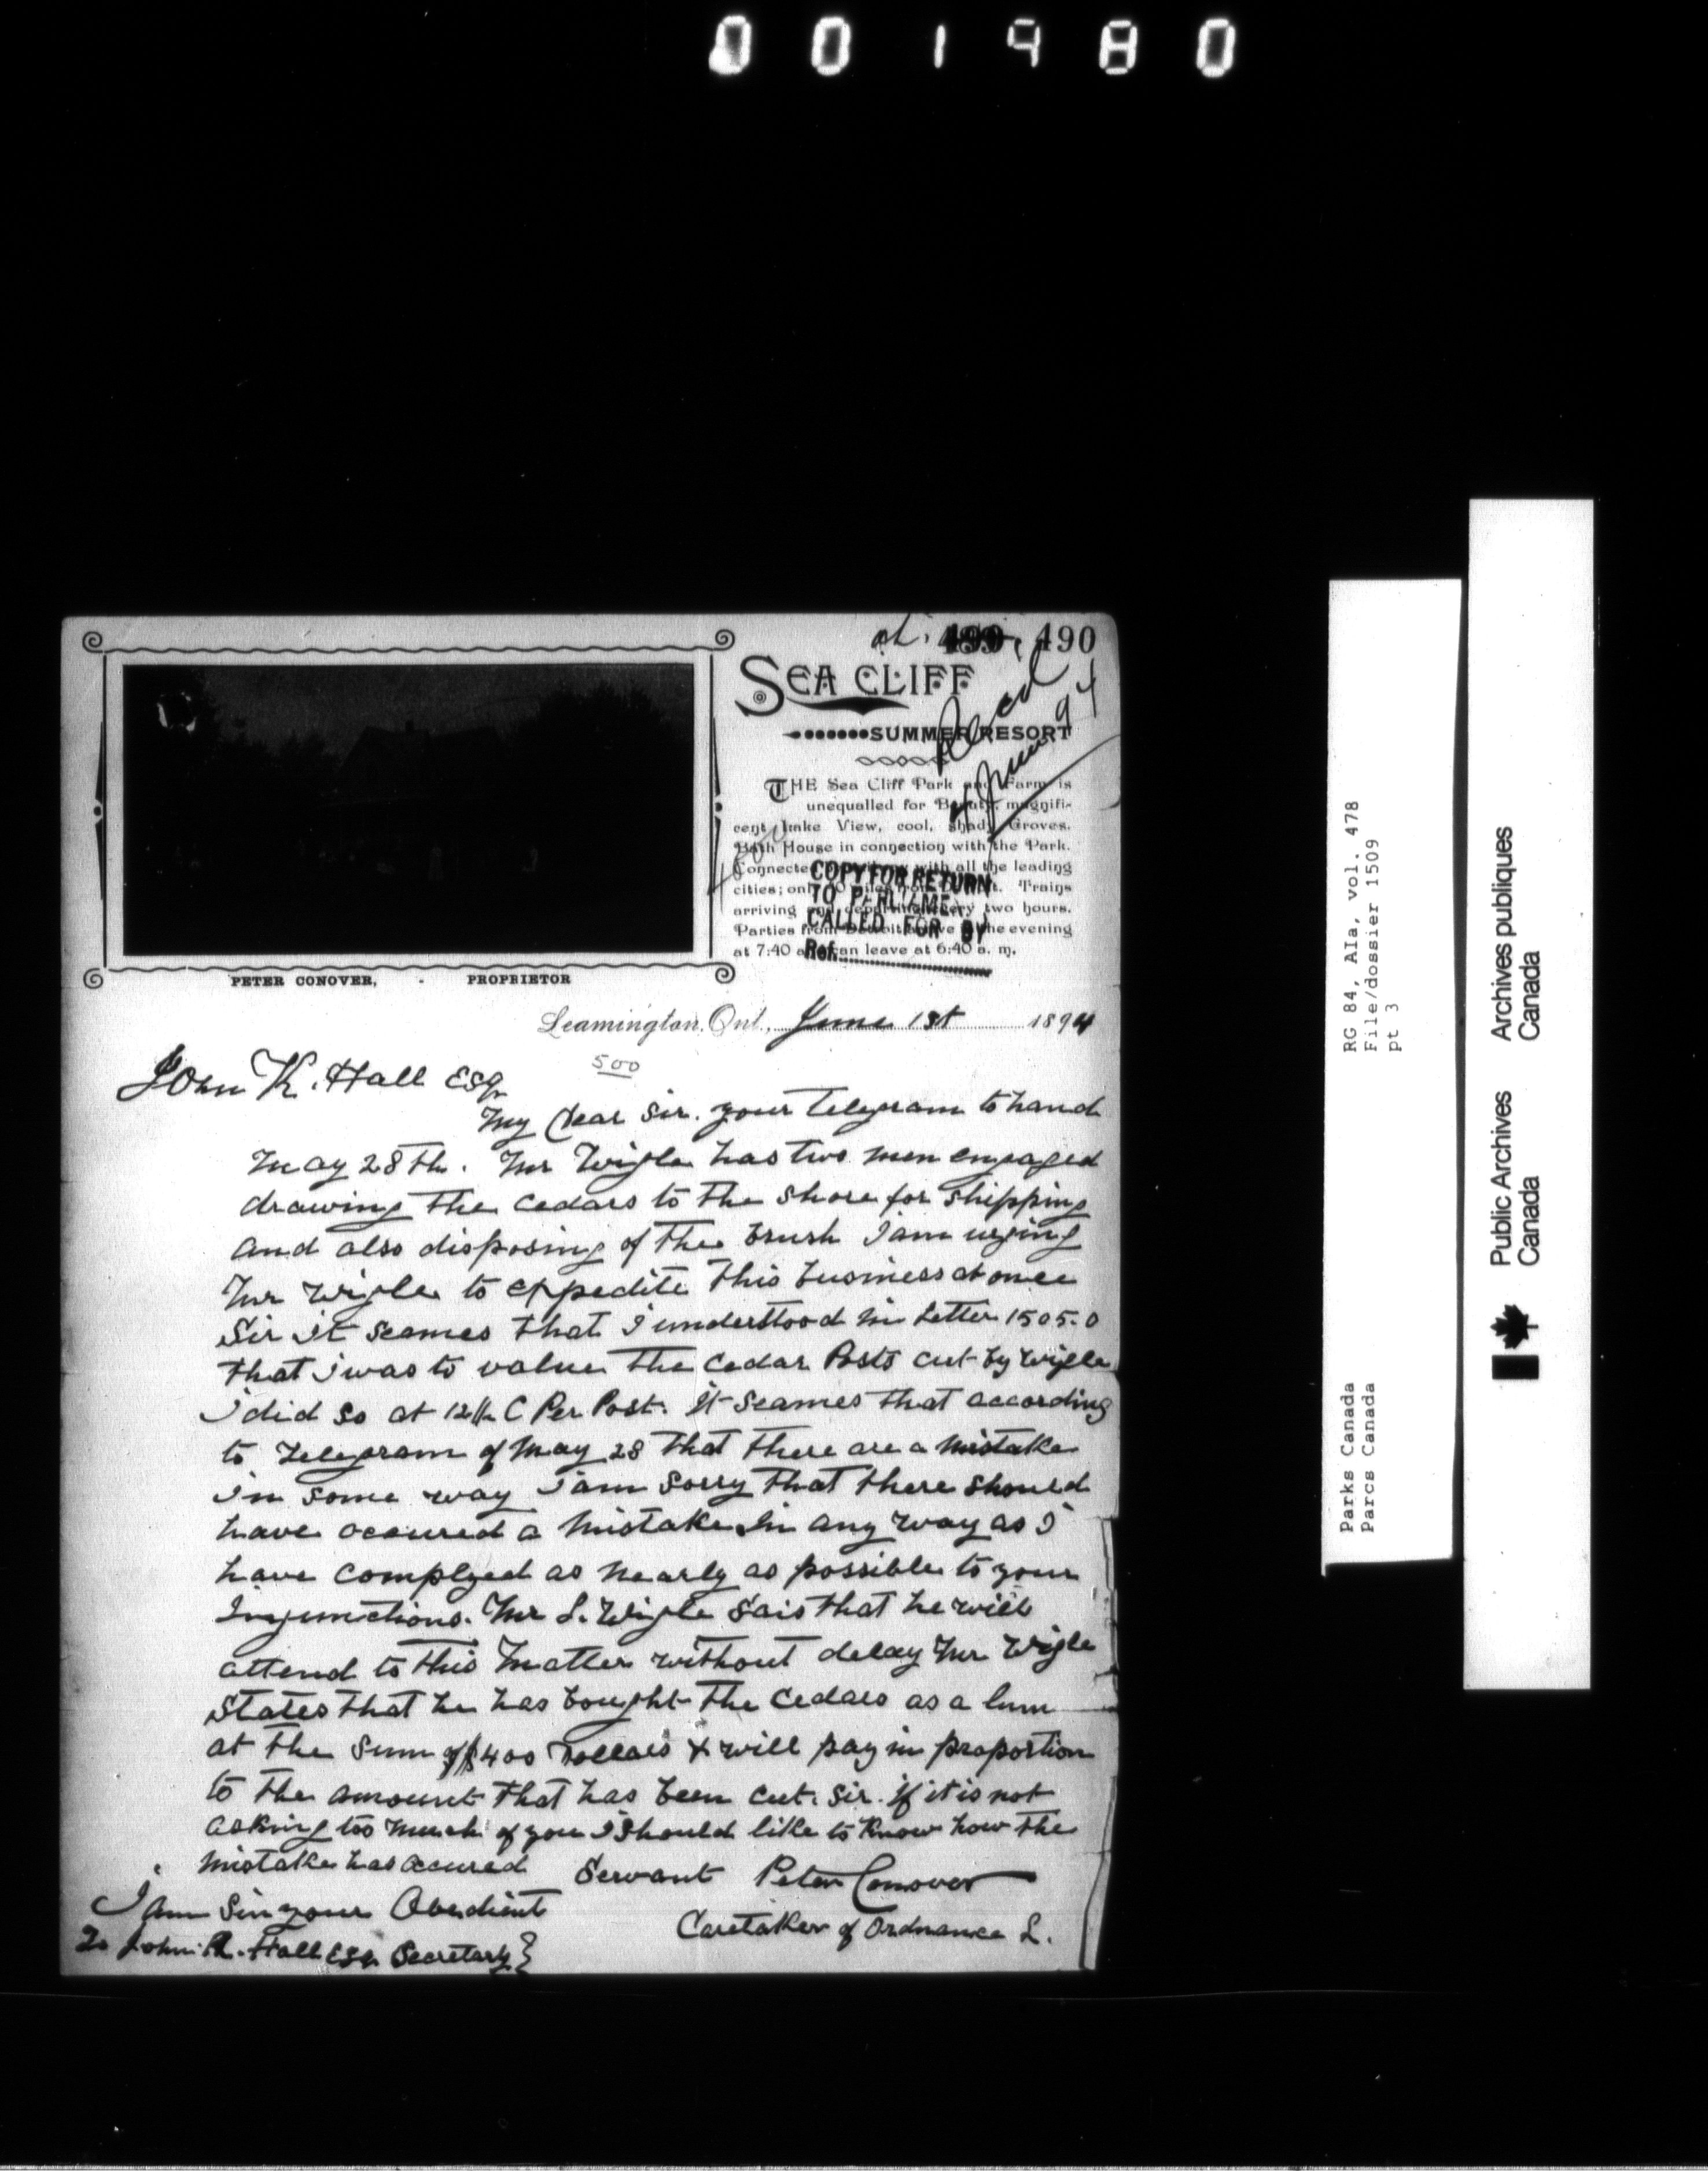 001980
490
SEA CLIFF
SUMMER RESORT
Recd
4 June 94
THE Sea Cliff Park and Farm is
unequalled for Beauty, magnifi-
cent Lake View, cool, shady Groves.
Bath House in connection with the Park.
Connected with all the leading
cities; only Trains
arriving and departing every two hours.
Parties from Detroit the evening
at 7:40 can leave at 6:40 a. m.
COPY FOR RETURN
TO PARLIAMENT
CALLED FOR BY
Ref.
PETER CONOVER, - PROPRIETOR
Leamington, Ont., June 1st 1894
500
John K. Hall Esq
My Dear Sir. your Telegram to hand
May 28th. Mr Wigle has two men engaged
drawing the cedars to the shore for shipping
and also disposing of the brush I am urging
Mr Wigle to expedite this business at once
Sir it seames that I understood in Letter 15050
that I was to value the Cedar Posts cut by Wigle
I did so at 12½ C Per Post. it seames that according
to Telegram of May 28 that there are a mistake
in some way I am sorry that there should
have occured a mistake in any way as I
have complyed as nearly as possible to your
Injunctions. Mr L. Wigle sais that he will
attend to this matter without delay Mr Wigle
states that he has bought the Cedars as a lum
at the sum of $400 Dollars & will pay in proportion
to the amount that has been cut. Sir. if it is not
asking too much of you I should like to know how the
mistake has accured
I am Sir your Obedient Servant Peter Conover
Caretaker of Ordnance L.
To John R. Hall Esq Secretary}
Parks Canada RG 84, A1a, vol. 478
Parcs Canada File/dossier 1509
pt 3
Public Archives Archives publiques
Canada Canada